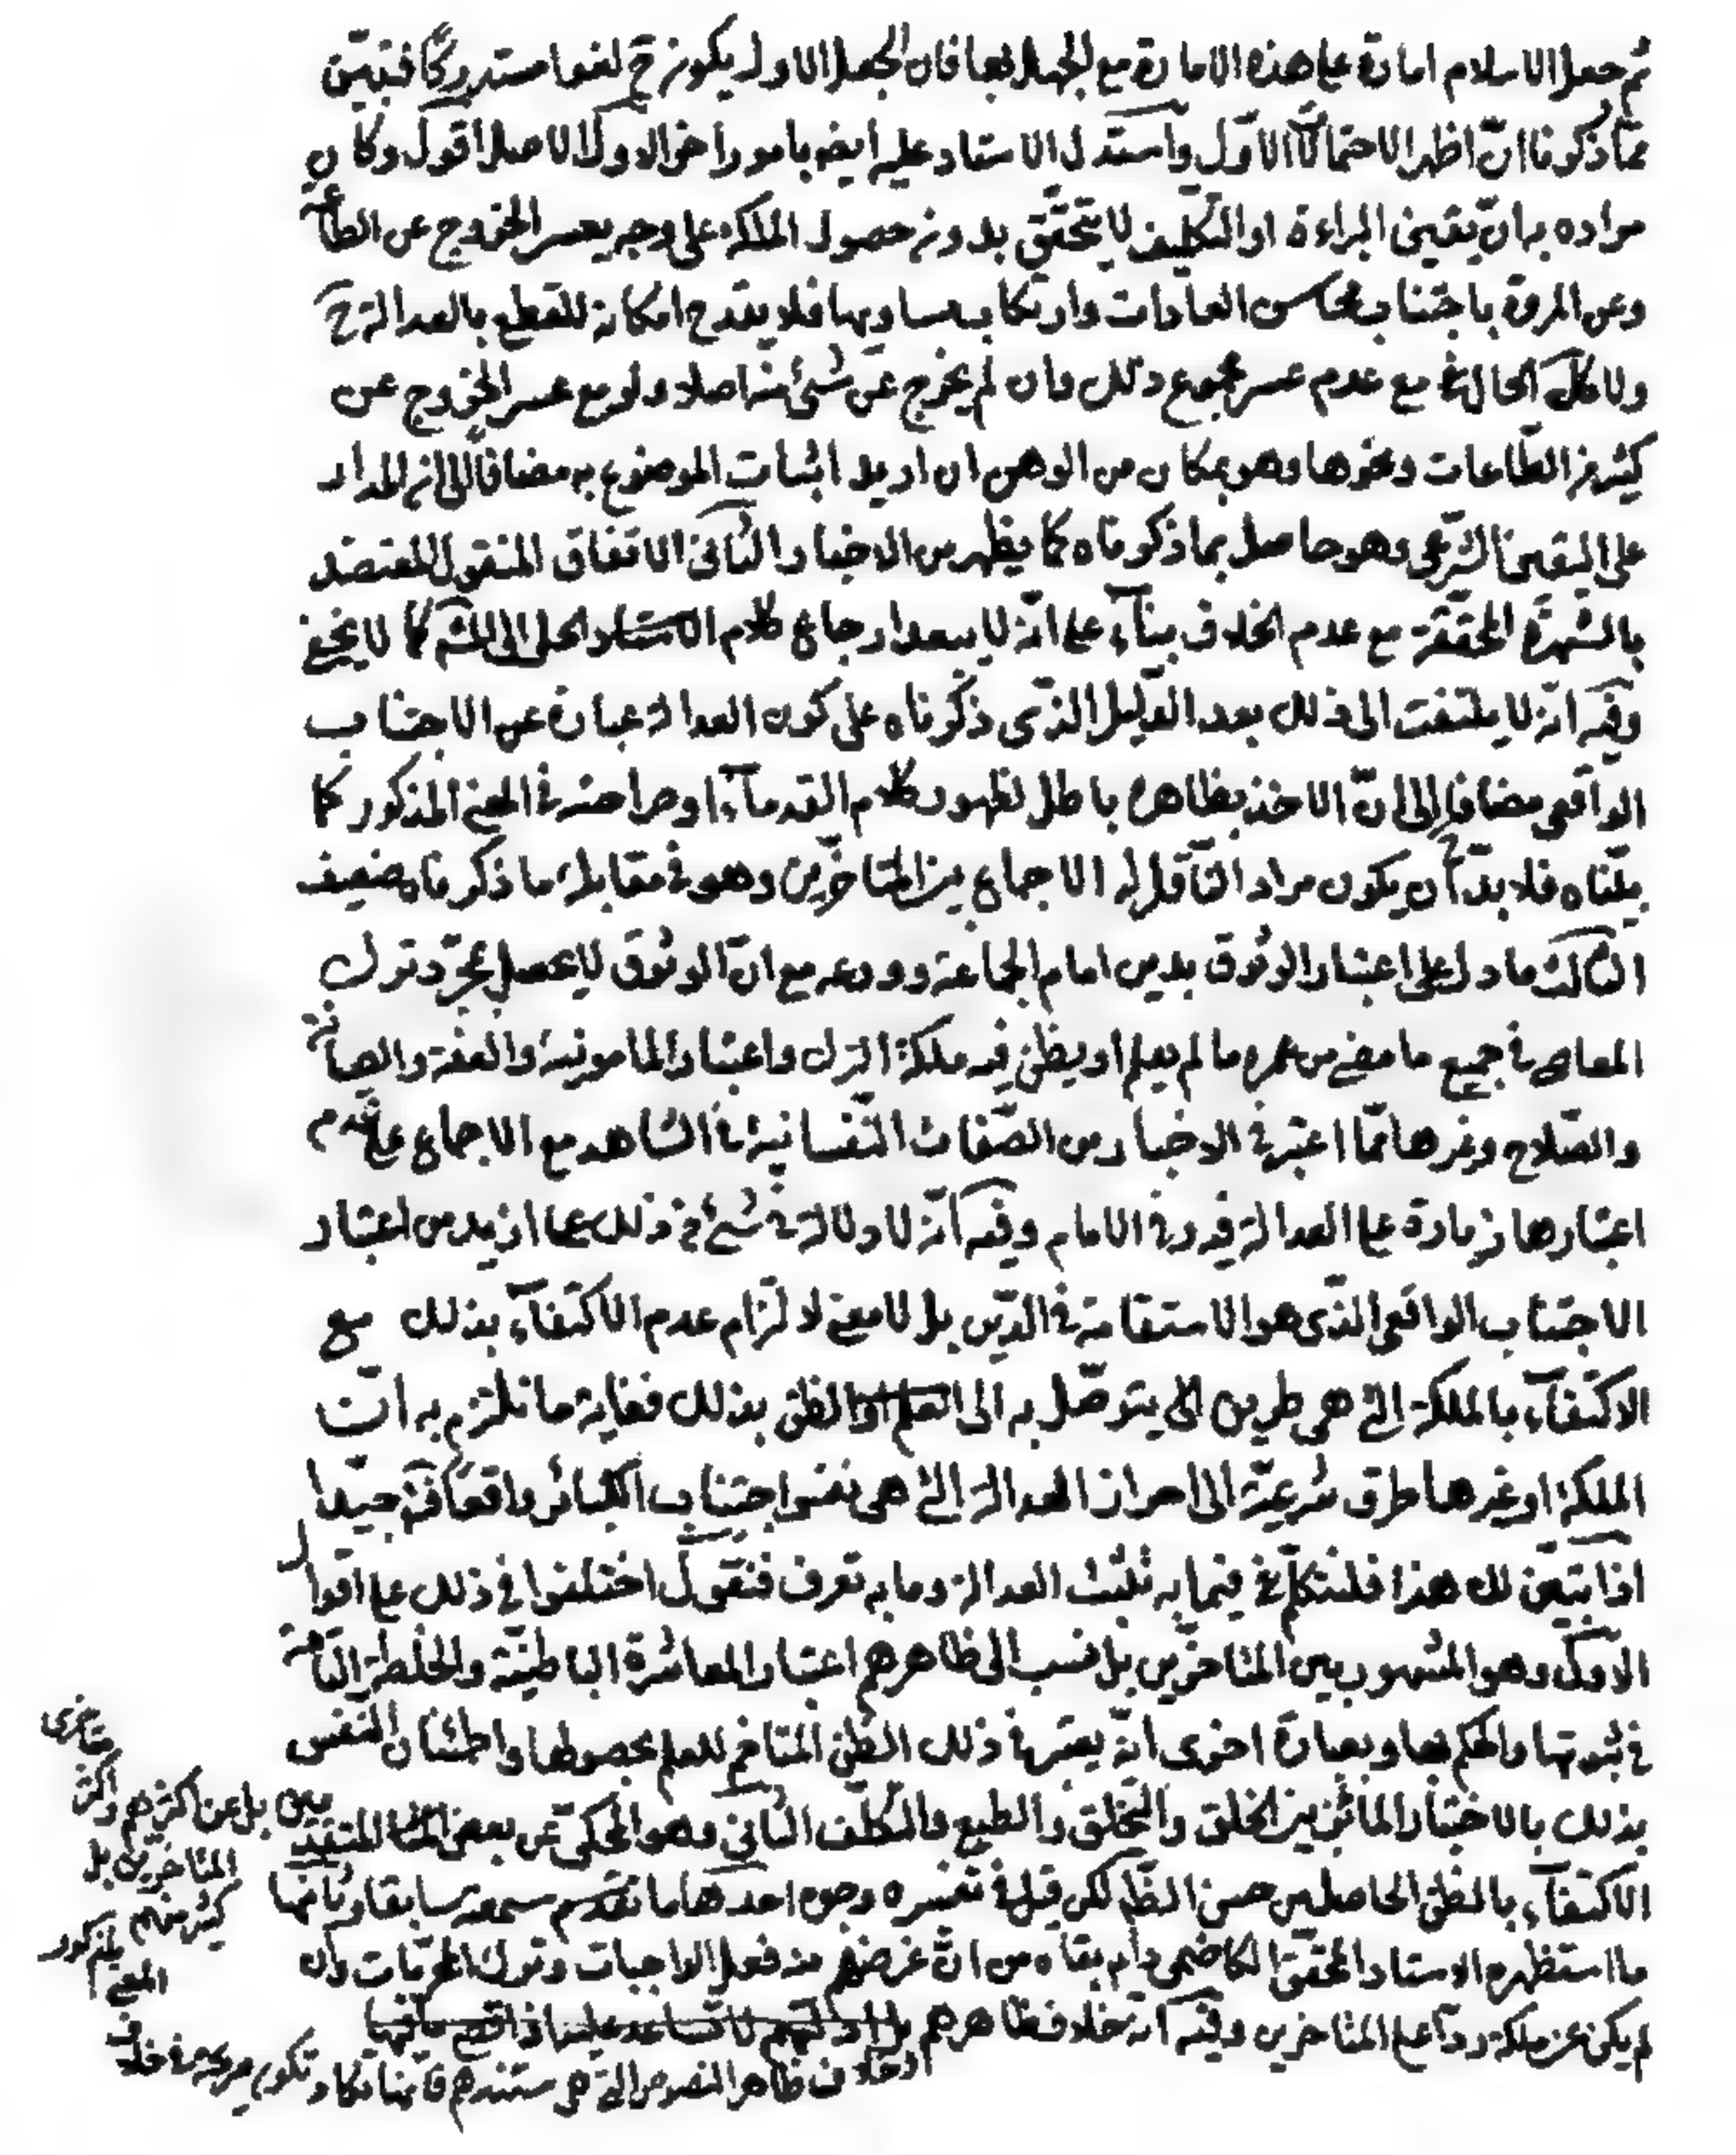 ثم جعل الاسلام امارة على هذه الامارة مع الجهل بها فان الجعل الاول يكون ح لغوا مستدركا فتبين
مما ذكرنا ان اظهر الاحتمالات الاول واستدل الاستاد عليه ايضه بامور اخر الاول الاصل اقول وكان
مراده به ان يقين البراءة او التكليف لا يتحقق بدونه حصول الملكة على وجه يعسر الخروج عن الطاعة
وعن المروة باجتناب محاسن العادات وارتكاب مساويها فلا يقدح امكانه للقطع بالعدالة ح
ولا كل الحالة مع عدم عسر مجموع ذلك وان لم يخرج عن شئ منه اصلا ولو مع عسر الخروج عن
كثير من الطاعات ونحوها وهو بمكان من الوهن ان اريد اثبات الموضوع به مضافا الى ان المدار
على اليقين الشرعى وهو حاصل بما ذكرناه كما يظهر من الاخبار الثانى الاتفاق المنقول المعتضد
بالشهرة المحققة مع عدم الخلاف بيناء على انه لا يبعد ارجاع كلام الحلى الى المشهر كما لا يخفى
وفيه انه لا يلتفت الى ذلك بعد الدليل الذى ذكرناه على كون العدالة عبارة عن الاجتناب
الواقعى مضافا الى ان الاخذ بظاهره باطل لظهور كلام القدماء او صراحته فى المعنى المذكور كما
بيناه فلا بد ان يكون مراد الناقل له الاجماع بين المتاخرين وهو فى مقابلة ما ذكرناه ضعيف
الثالث ما دل على اعتبار الوثوق بدين امام الجماعة وورعه مع ان الوثوق لا يحصل بمجرد ترك
المعاصى فى جميع ما مضى من عمره ما لم يعلم او يظن فيه ملكة الترك واعتبار المامونية والعفة والصيانة
والصلاح وغيرها مما اعتبر فى الاخبار من الصفات النفسانية فى الشاهد مع الاجماع على عدم
اعتبارها زيادة على العدالة فيه وفى الامام وفيه انه لا دلالة فى شئ من ذلك على ازيد من اعتبار
الاجتناب الواقعى الذى هو الاستقامة فى الدين بل لا معنى لالتزام عدم الاكتفاء بذلك مع
الاكتفاء بالملكة التى هى طريق الى يتوصل به الى العلم او الظن بذلك فغاية ما نلتزم به ان
الملكة او غيرها طرق شرعية الى احراز العدالة التى هى نفس اجتناب الكبائر واقعا فته جيدا
اذا تبين لك هذا فلنتكلم فيما به تثبت العدالة وما به تعرف فنقول اختلفوا فى ذلك على اقوال
الاول وهو المشهور بين المتاخرين بل نسب الى ظاهرهم اعتبار المعاشرة الباطنية والخلطة التامة
فى ثبوتها والحكم بها وبعبارة اخرى انه يعتبر فى ذلك الظن المتاخم للعلم بحصولها واطمئنان النفس
بذلك بالاختبار المائز بين الخلق والتخلق والطبع والتكلف الثانى وهو المحكى عن بعض المتاخر المتقدمين بل عن اكثرهم واكثر
المتاخرين بل
كثير منهم
الاكتفاء بالظن الحاصل من حسن الظاهر لكن قيل فى تفسيره وجوه احدها ما تقدم سمعته سابقا وثانيها
ما استظهره الاستاد المحقق الكاظمى دام بقاه من ان غرضهم منه فعل الواجبات وترك المحرمات وان
لم يكن عن ملكة ردا على المتاخرين وفيه انه خلاف ظاهرهم
او خلاف ظاهر النصوص التى هى مستندهم فانها تكاد تكون صريحة فى خلاف
المعنى
المذكور